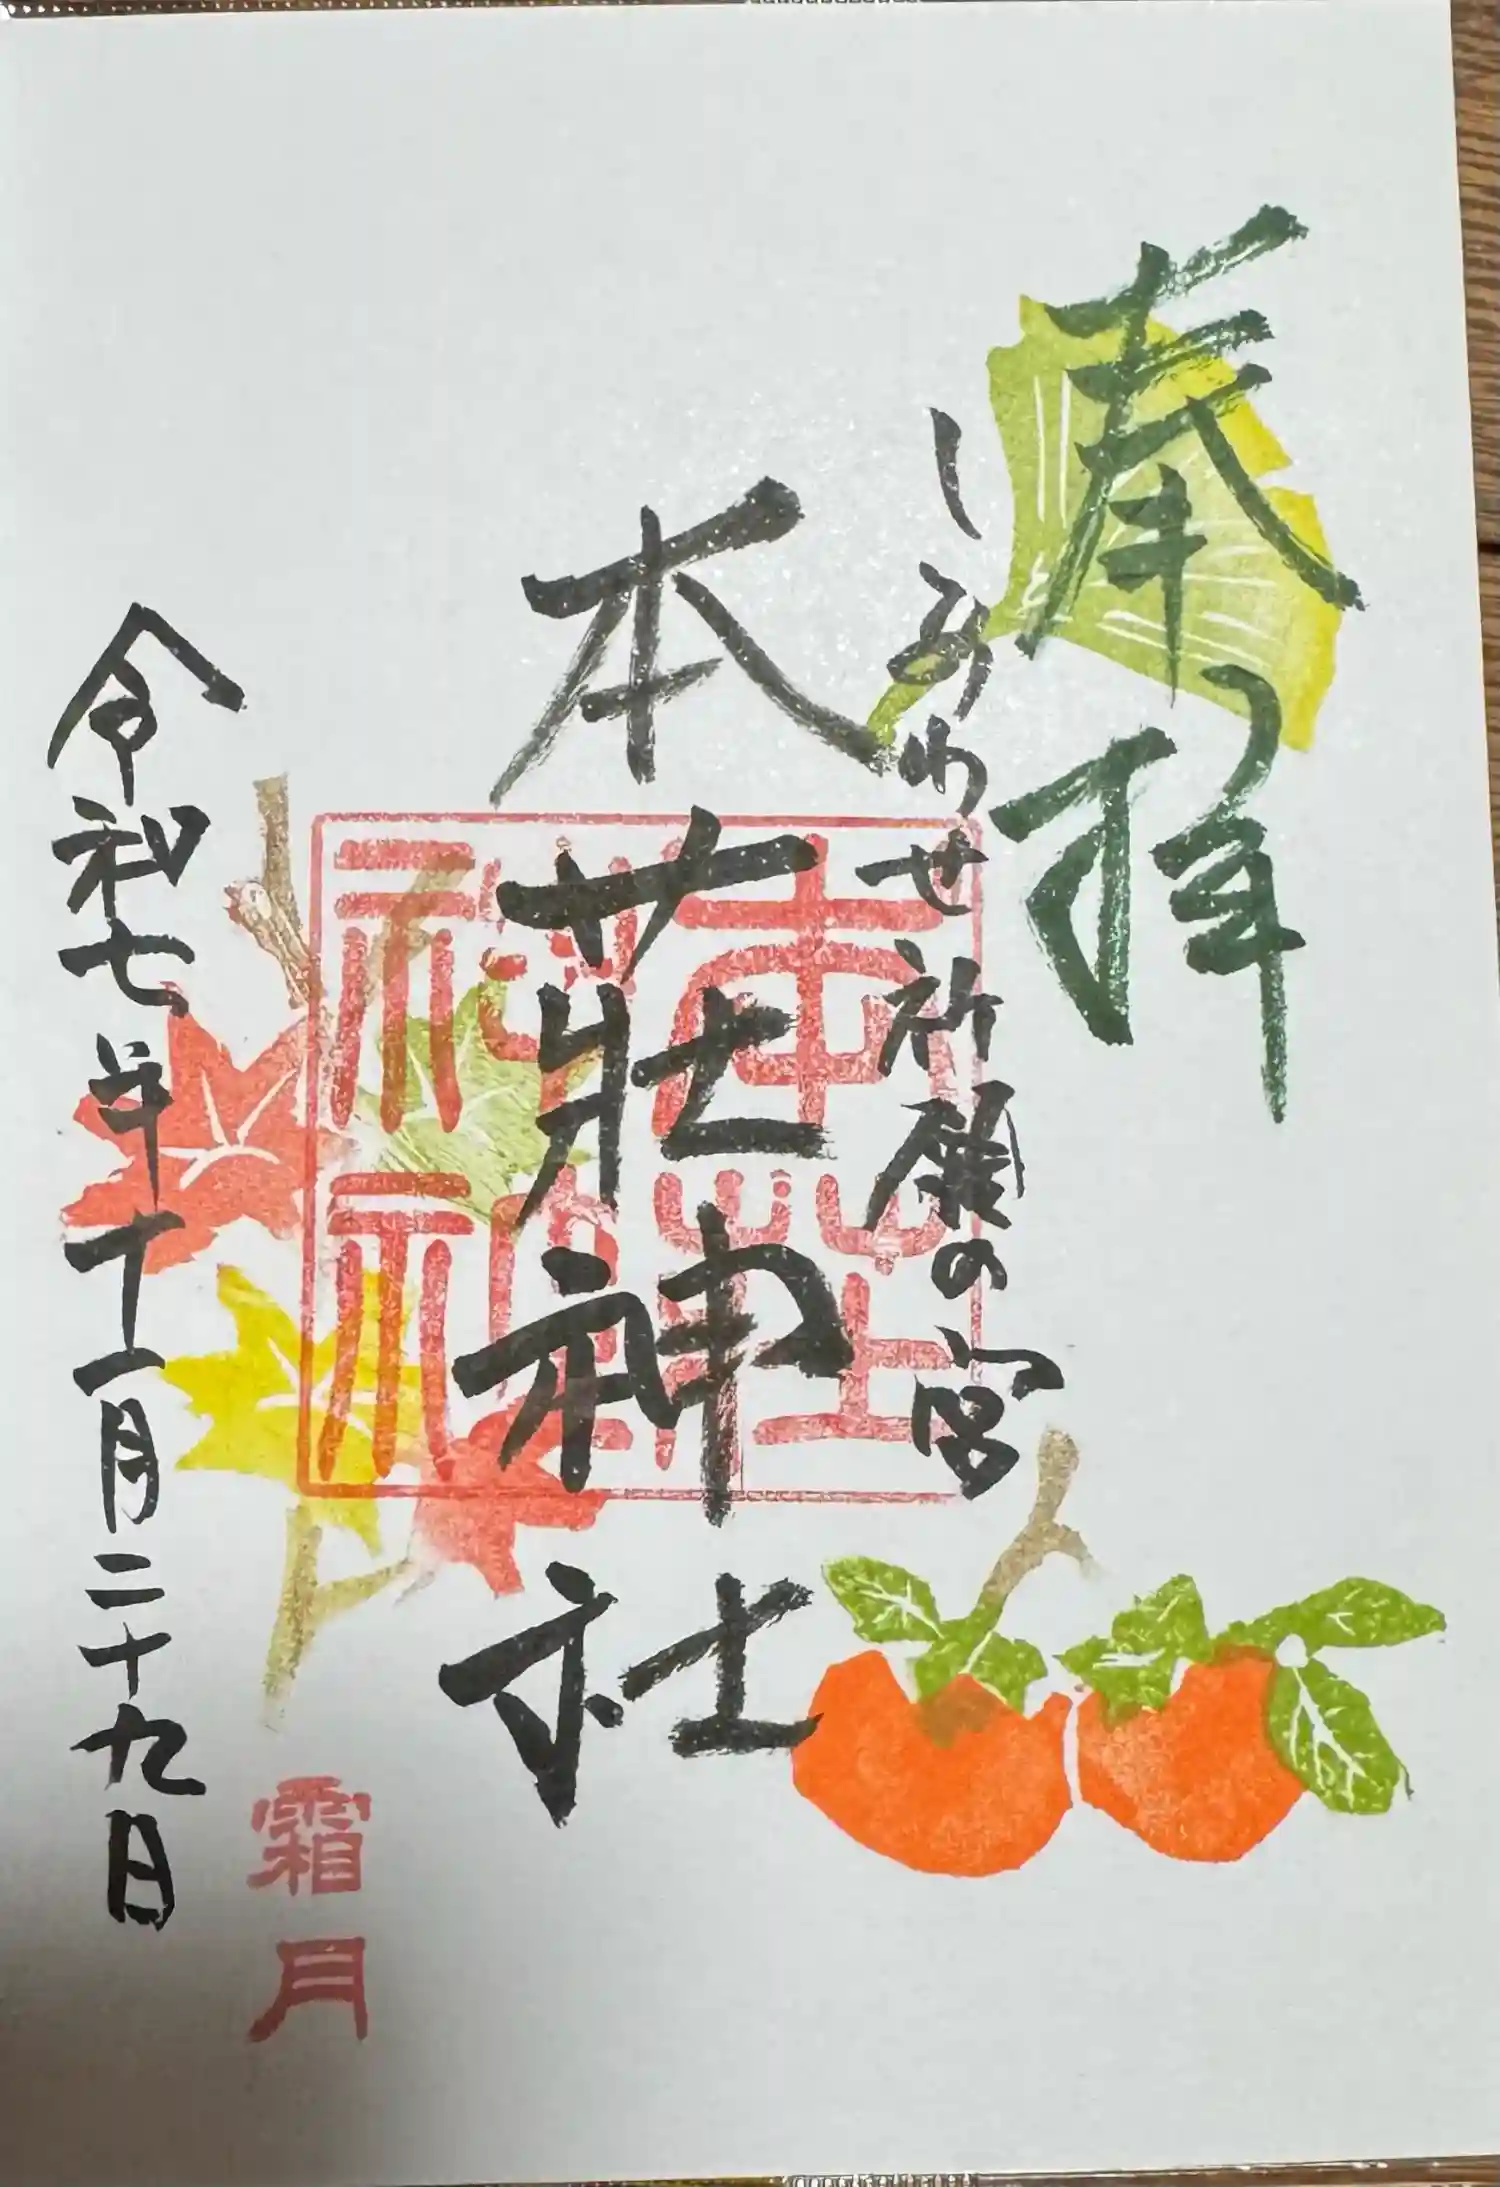 奉拝
しあわせ祈願の宮
本荘神社
本荘神社
霜月
令和七年十一月二十九日